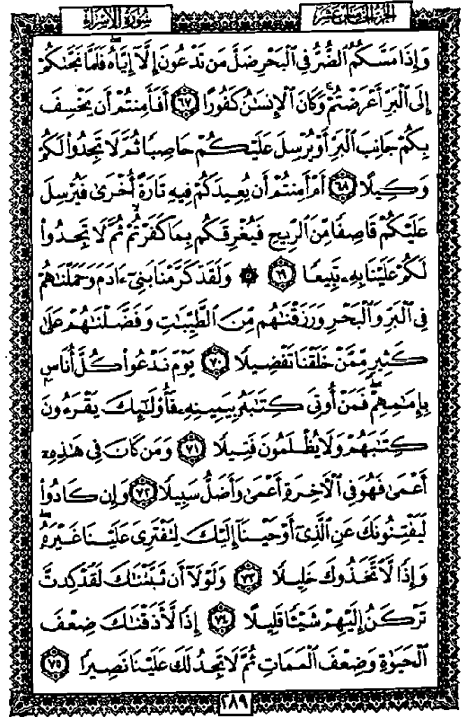 الجزء الخامس عشر
سورة الإسراء
وَإِذَا مَسَّكُمُ ٱلضُّرُّ فِى ٱلْبَحْرِ ضَلَّ مَن تَدْعُونَ إِلَّآ إِيَّاهُ فَلَمَّا نَجَّىٰكُمْ
إِلَى ٱلْبَرِّ أَعْرَضْتُمْ وَكَانَ ٱلْإِنسَٰنُ كَفُورًا ٦٧ أَفَأَمِنتُمْ أَن يَخْسِفَ
بِكُمْ جَانِبَ ٱلْبَرِّ أَوْ يُرْسِلَ عَلَيْكُمْ حَاصِبًا ثُمَّ لَا تَجِدُوا۟ لَكُمْ
وَكِيلًا ٦٨ أَمْ أَمِنتُمْ أَن يُعِيدَكُمْ فِيهِ تَارَةً أُخْرَىٰ فَيُرْسِلَ
عَلَيْكُمْ قَاصِفًا مِّنَ ٱلرِّيحِ فَيُغْرِقَكُم بِمَا كَفَرْتُمْ ثُمَّ لَا تَجِدُوا۟
لَكُمْ عَلَيْنَا بِهِۦ تَبِيعًا ٦٩ ۞ وَلَقَدْ كَرَّمْنَا بَنِىٓ ءَادَمَ وَحَمَلْنَٰهُمْ
فِى ٱلْبَرِّ وَٱلْبَحْرِ وَرَزَقْنَٰهُم مِّنَ ٱلطَّيِّبَٰتِ وَفَضَّلْنَٰهُمْ عَلَىٰ
كَثِيرٍ مِّمَّنْ خَلَقْنَا تَفْضِيلًا ٧٠ يَوْمَ نَدْعُوا۟ كُلَّ أُنَاسٍۭ
بِإِمَٰمِهِمْ فَمَنْ أُوتِىَ كِتَٰبَهُۥ بِيَمِينِهِۦ فَأُو۟لَٰٓئِكَ يَقْرَءُونَ
كِتَٰبَهُمْ وَلَا يُظْلَمُونَ فَتِيلًا ٧١ وَمَن كَانَ فِى هَٰذِهِۦٓ
أَعْمَىٰ فَهُوَ فِى ٱلْءَاخِرَةِ أَعْمَىٰ وَأَضَلُّ سَبِيلًا ٧٢ وَإِن كَادُوا۟
لَيَفْتِنُونَكَ عَنِ ٱلَّذِىٓ أَوْحَيْنَآ إِلَيْكَ لِتَفْتَرِىَ عَلَيْنَا غَيْرَهُۥ
وَإِذًا لَّٱتَّخَذُوكَ خَلِيلًا ٧٣ وَلَوْلَآ أَن ثَبَّتْنَٰكَ لَقَدْ كِدتَّ
تَرْكَنُ إِلَيْهِمْ شَيْـًٔا قَلِيلًا ٧٤ إِذًا لَّأَذَقْنَٰكَ ضِعْفَ
ٱلْحَيَوٰةِ وَضِعْفَ ٱلْمَمَاتِ ثُمَّ لَا تَجِدُ لَكَ عَلَيْنَا نَصِيرًا ٧٥
٢٨٩